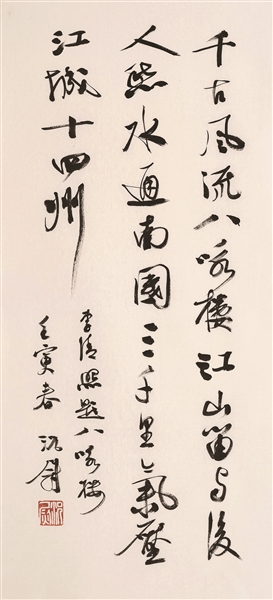 千古風流八咏樓江山留与後
人愁水通南國三千里氣壓
江城十四州
李清照題八咏楼
壬寅春